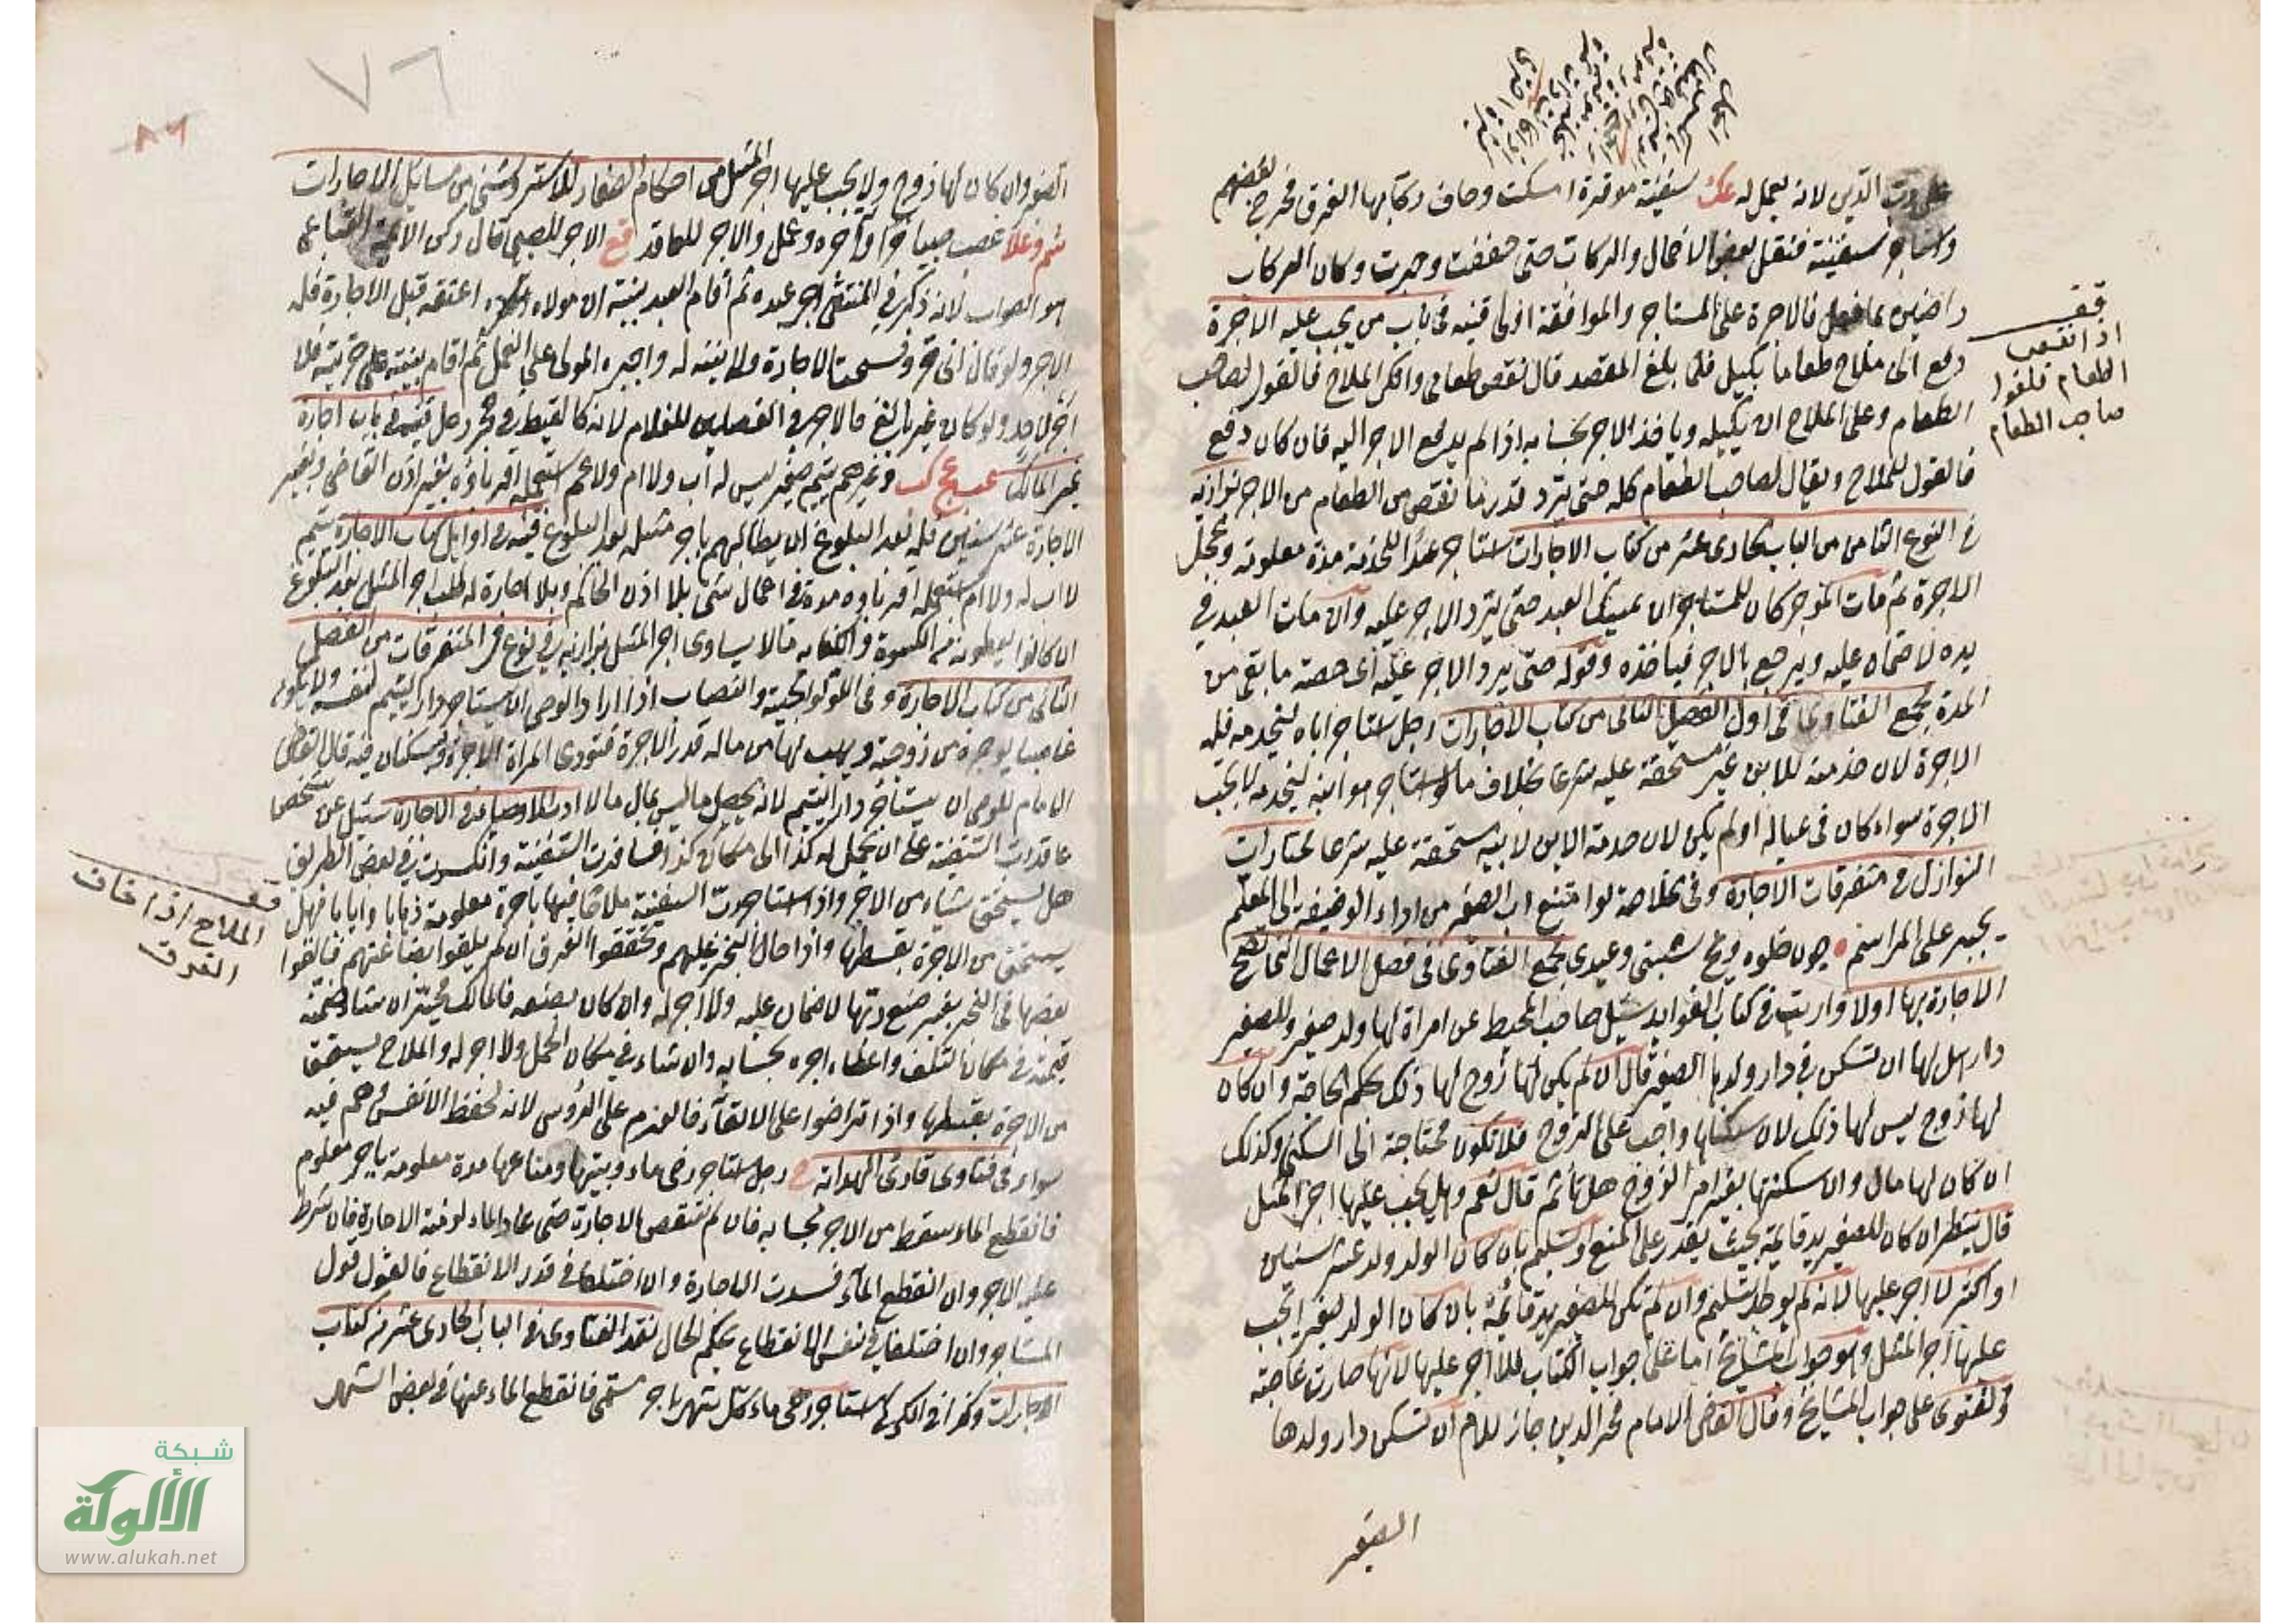 على رب الدين لانه يعمل له عك سفينة موقرة امسكت وخاف ركابها الغرق فخرج بعضهم
واستاجر سفينة فنقل بعض الاحمال والركاب حتى خففت وجرت وكان الركاب
راضين بما فعل فالاجرة على المستاجر والموافقة اولى قنيه في باب من يجب عليه الاجرة
دفع الى ملاح طعاما بكيل فلما بلغ المقصد قال نقص طعامي وانكر الملاح فالقول لصاحب
الطعام وعلى الملاح ان يكيله وياخذ الاجر بحسابه اذا لم يدفع الاجر اليه فان كان دفع
فالقول للملاح ويقال لصاحب الطعام كله حتى يترد قدر ما نقص من الطعام من الاجر بزازيه
في النوع الثامن من الباب الحادى عشر من كتاب الاجارات استاجر عبدا للخدمة مدة معلومة وعجل
الاجرة ثم مات الموجر كان للمستاجر ان يمسك العبد حتى يترد الاجر عليه وان مات العبد في
يده لا ضمان عليه ويرجع بالاجر فياخذه وقوله حتى يرد الاجر عليه اى حصة ما بقى من
المدة مجمع الفتاوى في اول الفصل الثانى من كتاب الاجارات رجل استاجر اباه ليخدمه فله
الاجرة لان خدمته للابن غير مستحقة عليه شرعا بخلاف ما لو استاجر هو ابنه ليخدمه لا يجب
الاجرة سواء كان في عياله او لم يكن لان خدمة الابن لابيه مستحقة عليه شرعا مختارات
النوازل في متفرقات الاجارة وفى الخلاصة لو امتنع اب الصغير من اداء الوضيفة الى المعلم
يجبر على المراسم شبنى وعيدى مجمع الفتاوى في فصل الاعمال التى تصح
الاجارة بها اولا وارتب في كتاب الفوايد سئل صاحب المحيط عن امراة لها ولد صغير وللصغير
دار هل لها ان تسكن في دار ولدها الصغير قال ان لم يكن لها زوج لها ذلك بحكم الحاجة وان كان
لها زوج ليس لها ذلك لان سكناها واجب على الزوج فلا تكون محتاجة الى السكنى وكذلك
ان كان لها مال وان سكنتها بغير امر الزوج هل تاثم قال نعم وهل يجب عليها اجر المثل
قال ينظر ان كان للصغير يد قايمة بحيث يقدر على المنع وتسليم بان كان الولد ولد عشر سنين
او اكثر لا اجر عليها لانه لم يوجد تسليم وان لم تكن للصغير يد قائمة بان كان الولد ليغير يجب
عليها اجر المثل وهو جواب المشايخ اما على جواب الكتاب فلا اجر عليها لانها صارت غاصبة
والفتوى على جواب المشايخ وقال القاضى الامام فخر الدين جاز للام ان تسكن دار ولدها
الصغير
قف
اذا نقص
الطعام فلقول
صاحب الطعام
٧٦
٨٦
الصغير وان كان لها زوج ولا يجب عليها اجر المثل من احكام الصغار للاستر وشنى من مسائل الاجارات
شم وعلا غصب صبيا حرا وآجره وعمل والاجر للعاقد قع الاجر للصبى قال ركن الائمة الصباغى
هو الصواب لانه ذكر في المنتقى اجر عبده ثم اقام العبد بينة ان مولاه اعتقه قبل الاجارة فله
الاجر ولو قال انى حر وفسخت الاجارة ولا بينة له واجبره المولى على العمل ثم اقام بينة على حريته فلا
اجر لاحد ولو كان غير بالغ فالاجر في الفصلين للغلام لانه كالقيط في حجر رجل قنيه في باب اجارة
غير المالك يتيم صغير ليس له اب ولا ام ولا عم استعمله اقرباؤه بغير اذن القاضى وبغير
الاجارة عشر سنين فله بعد البلوغ ان يطالبهم باجر مثله بعد البلوغ قنيه في اوايل كتاب الاجارة يتيم
لا اب له ولا ام استعمله اقرباوه مدة في اعمال شتى بلا اذن الحاكم وبلا اجارة له طلب اجر المثل بعد البلوغ
ان كانوا يعطونه من الكسوة والكفاية مالا يساوى اجر المثل بزازيه في نوع في المتفرقات من الفصل
الثانى من كتاب الاجارة وفى اللولوالجية والنصاب اذا اراد الوصى ان يستاجر دار اليتيم لنفسه ولا يكون
غاصبا يوجره من زوجته ويهب لها من ماله قدر الاجرة فتودى المراة الاجرة ويسكنان فيه قال القاضى
الامام للوصى ان يستاجر دار اليتيم لانه يجعل ما ليس بمال مالا سئل عن شخص
عاقد رب السفينة على ان يحمل له كذا الى مكان كذا فسافرت السفينة وانكسرت في بعض الطريق
هل يستحق شياء من الاجر واذا استاجر رب السفينة ملاحا فيها باجرة معلومة ذهابا وايابا فهل
يستحق من الاجرة بقسطها واذا هاج البحر عليهم وتحققوا الغرق ان لم يلقوا بضاعتهم فالقوا
بعضها فى البحر بغير صنع ربها لا ضمان عليه ولا اجر له وان كان بصنعه فالمالك مخير ان شاء ضمنه
قيمته في مكان التلف واعطاء اجره بحسابه وان شاء في مكان الحمل ولا اجر له والملاح يستحق
من الاجرة بقسطها واذا تراضوا على الالقاء فالغرم على الروس لانه لحفظ الانفس وهم فيه
سواء في فتاوى قارئ الهداية رجل استاجر رحى ماء وبيتها ومتاعها مدة معلومة باجر معلوم
فانقطع الماء سقط من الاجر بحسابه فان لم تنتقض الاجارة حتى عاد الماء لزمته الاجارة فان شرط
عليه الاجر وان انقطع الماء فسدت الاجارة وان اختلفا في قدر الانقطاع فالقول قول
المستاجر وان اختلفا في نفس الانقطاع يحكم الحال نقد الفتاوى في الباب الحادى عشر من كتاب
الاجارات وذكر في الكرخى استاجر رحى ماء كل شهر باجر مسمى فانقطع الماء عنها في بعض الشهر
قف
الملاح اذا خاف
الغرق
شبكة
الألوكة
www.alukah.net